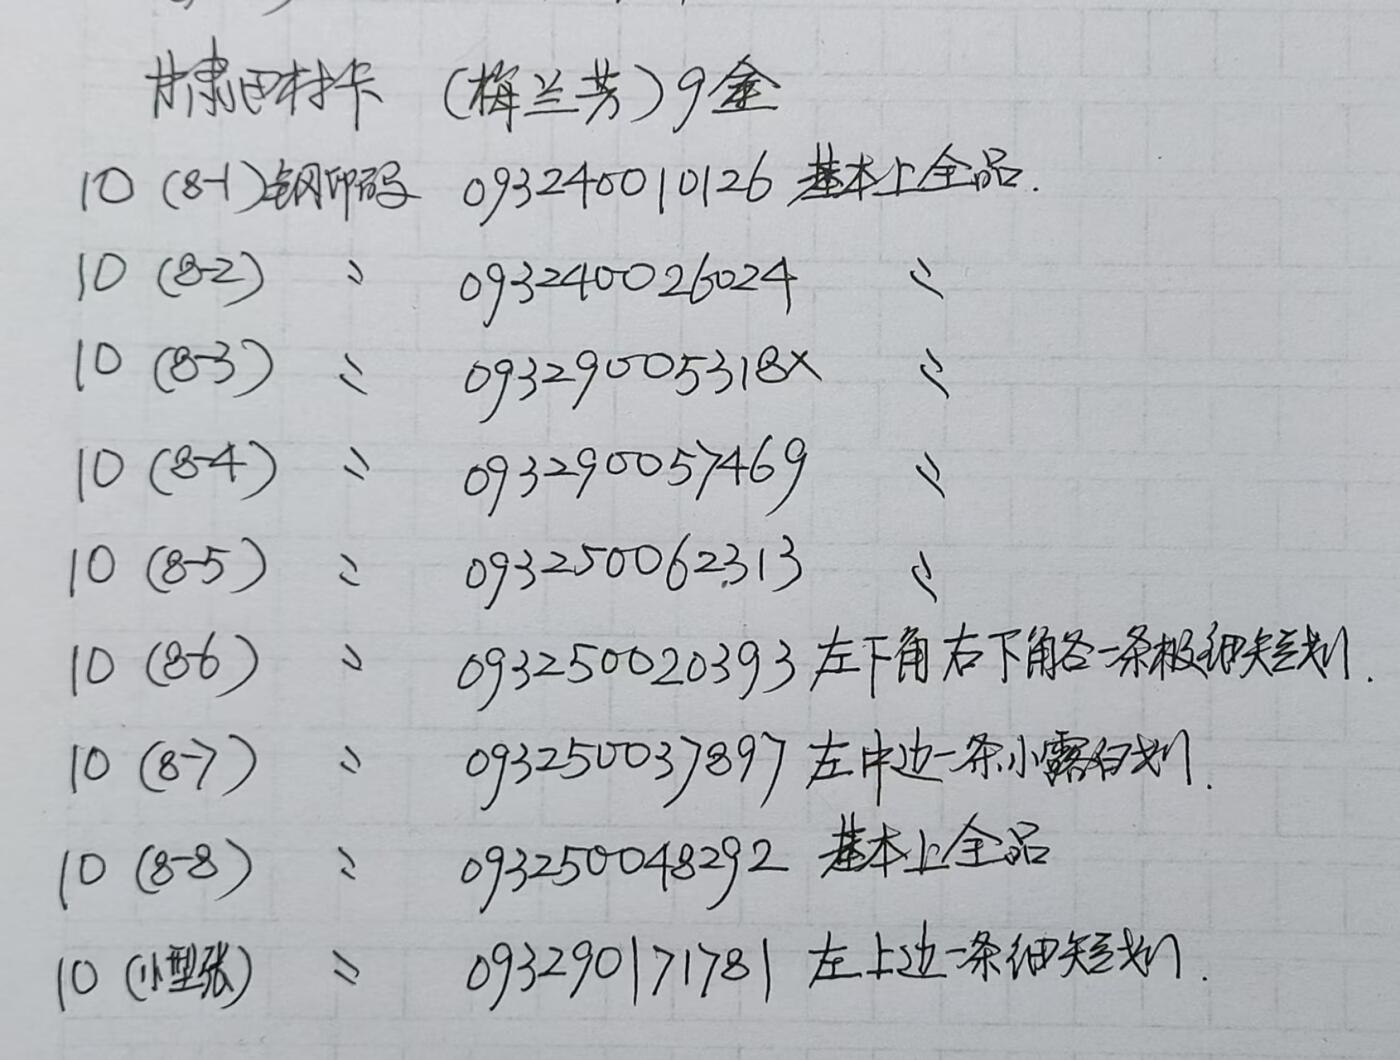 甘肃田村卡 (梅兰芳) 9金
10 (8-1) 钢印码 093240010126 基本上全品.
10 (8-2) 〃 093240026024 〃
10 (8-3) 〃 09329005318X 〃
10 (8-4) 〃 093290057469 〃
10 (8-5) 〃 093250062313 〃
10 (8-6) 〃 093250020393 左下角右下角各一条极细短划.
10 (8-7) 〃 093250037897 左中边一条小露白划.
10 (8-8) 〃 093250048292 基本上全品
10 (小型张) 〃 093290171781 左上边一条细短划.